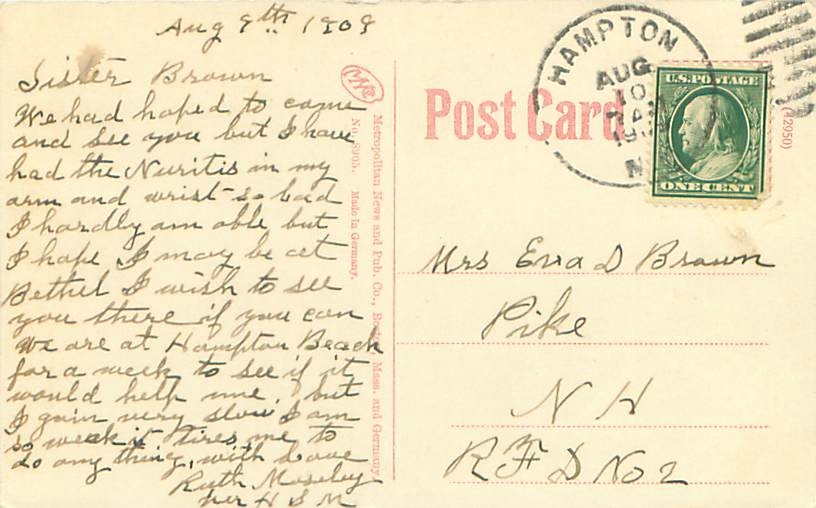 Aug 9th 1909
Sister Brown
We had hoped to come
and see you but I have
had the Nuritis in my
arm and wrist so bad
I hardly am able but
I hope I may be at
Bethel I wish to see
you there if you can
We are at Hampton Beach
for a week to see if it
would help me, but
I gain very slow I am
so weak it tires me to
do any thing, with Love
Ruth Moseley
per H S M
Metropolitan News and Pub. Co., Boston, Mass. and Germany.
No. 8905. Made in Germany.
Post Card
HAMPTON
AUG
10
AM
N
U.S. POSTAGE
ONE CENT
(12950)
Mrs Erra D Brown
Pike
N H
R F D No 2